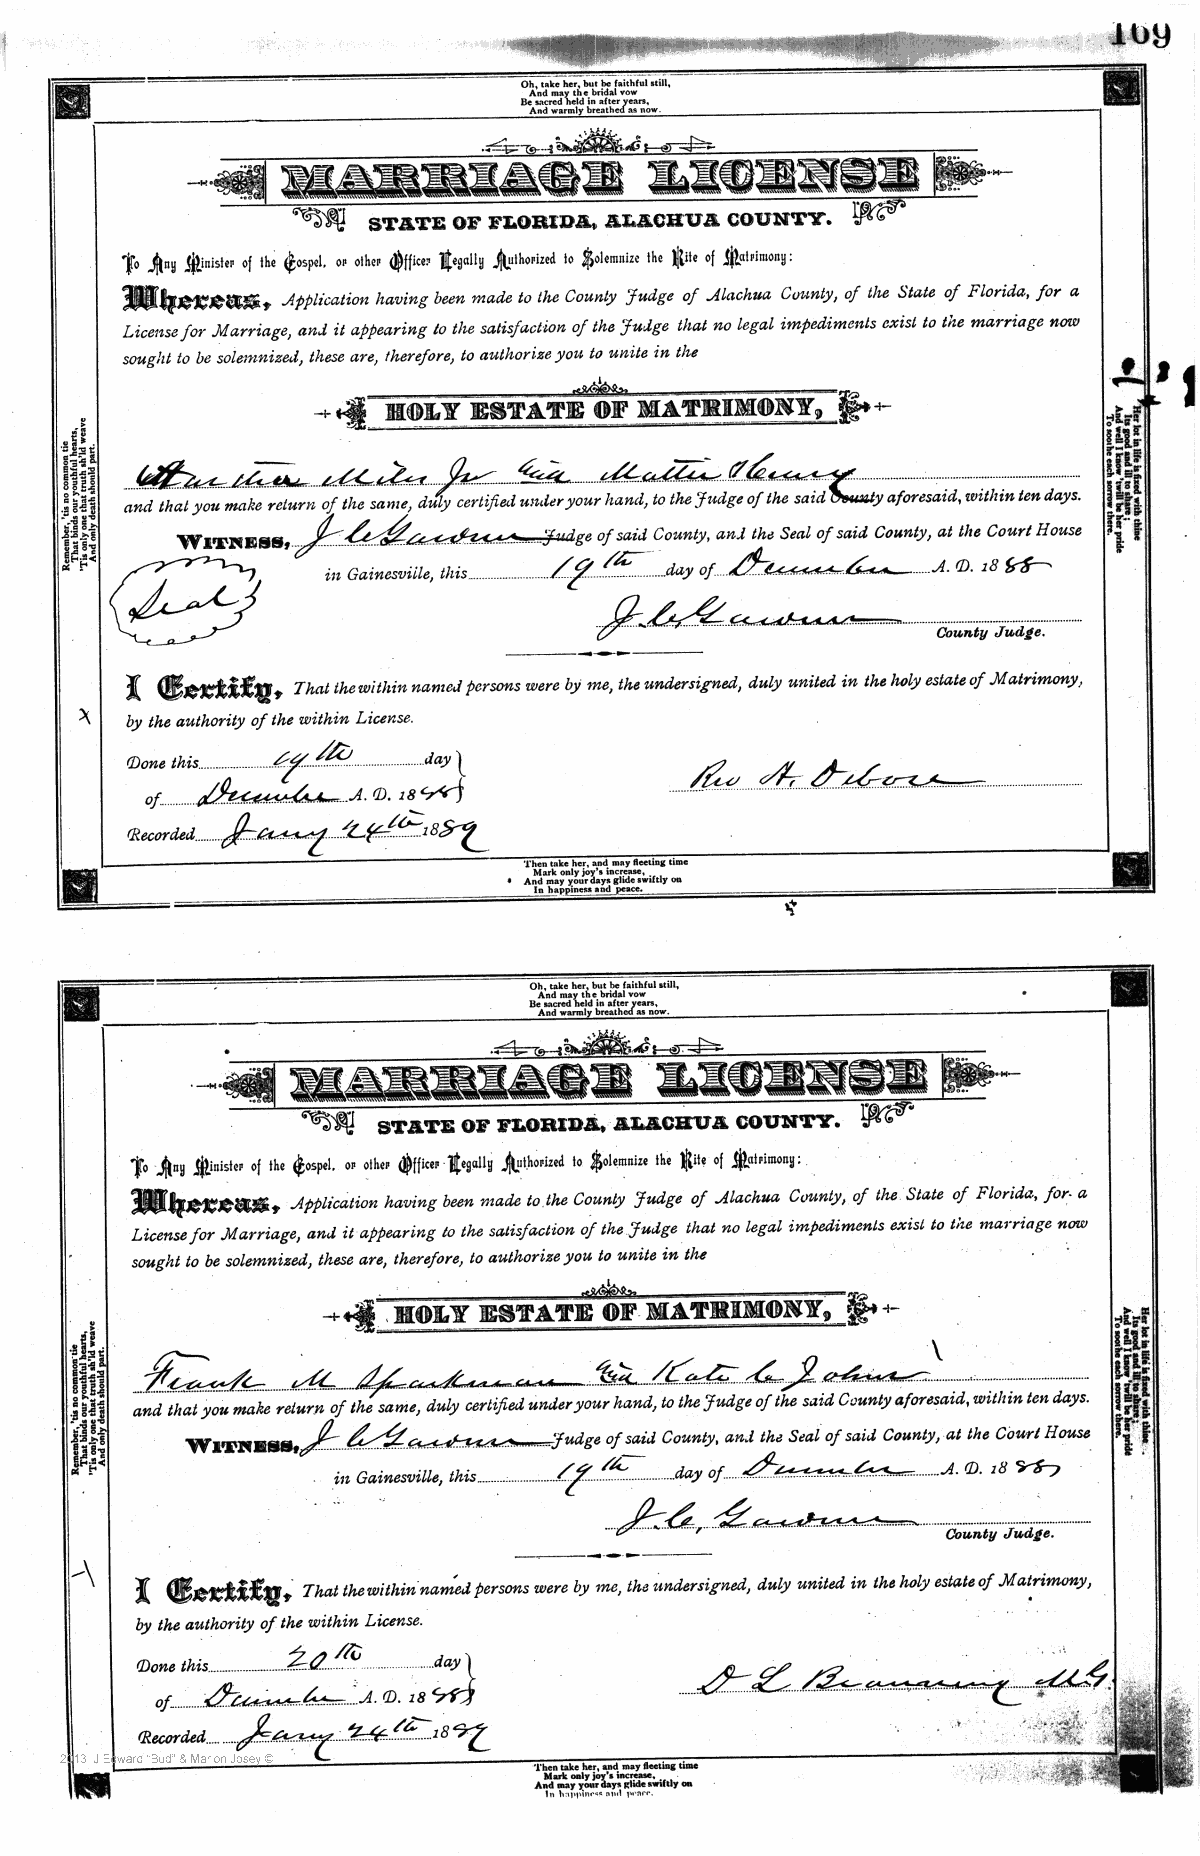 169
Oh, take her, but be faithful still,
And may the bridal vow
Be sacred held in after years,
And warmly breathed as now.
MARRIAGE LICENSE
STATE OF FLORIDA, ALACHUA COUNTY.
To Any Minister of the Gospel, or other Officer Legally Authorized to Solemnize the Rite of Matrimony:
Whereas, Application having been made to the County Judge of Alachua County, of the State of Florida, for a
License for Marriage, and it appearing to the satisfaction of the Judge that no legal impediments exist to the marriage now
sought to be solemnized, these are, therefore, to authorize you to unite in the
HOLY ESTATE OF MATRIMONY,
Miles Jr and Mattie Henry
and that you make return of the same, duly certified under your hand, to the Judge of the said County aforesaid, within ten days.
WITNESS, J C Gardner Judge of said County, and the Seal of said County, at the Court House
in Gainesville, this 19th day of December A. D. 1888
Seal
J. C. Gardner
County Judge.
I Certify, That the within named persons were by me, the undersigned, duly united in the holy estate of Matrimony,
by the authority of the within License.
Done this 19th day
of December A. D. 1888
Rev A. Debose
Recorded Jany 24th 1889
Remember, 'tis no common tie
That binds our youthful hearts,
'Tis only one that truth sh'ld weave
And only death should part.
Her lot in life is fixed with thine
Its good and ill to share;
And well I know 'twill be her pride
To soothe each sorrow there.
Then take her, and may fleeting time
Mark only joy's increase,
And may your days glide swiftly on
In happiness and peace.
Oh, take her, but be faithful still,
And may the bridal vow
Be sacred held in after years,
And warmly breathed as now.
MARRIAGE LICENSE
STATE OF FLORIDA, ALACHUA COUNTY.
To Any Minister of the Gospel, or other Officer Legally Authorized to Solemnize the Rite of Matrimony:
Whereas, Application having been made to the County Judge of Alachua County, of the State of Florida, for a
License for Marriage, and it appearing to the satisfaction of the Judge that no legal impediments exist to the marriage now
sought to be solemnized, these are, therefore, to authorize you to unite in the
HOLY ESTATE OF MATRIMONY,
Frank M Sparkman and Kate C Johns
and that you make return of the same, duly certified under your hand, to the Judge of the said County aforesaid, within ten days.
WITNESS, J C Gardner Judge of said County, and the Seal of said County, at the Court House
in Gainesville, this 19th day of December A. D. 1888
J. C. Gardner
County Judge.
I Certify, That the within named persons were by me, the undersigned, duly united in the holy estate of Matrimony,
by the authority of the within License.
Done this 20th day
of December A. D. 1888
D L Branning M.G.
Recorded Jany 24th 1889
Remember, 'tis no common tie
That binds our youthful hearts,
'Tis only one that truth sh'ld weave
And only death should part.
Her lot in life is fixed with thine
Its good and ill to share;
And well I know 'twill be her pride
To soothe each sorrow there.
2013 J Edward "Bud" & Marion Josey ©
Then take her, and may fleeting time
Mark only joy's increase,
And may your days glide swiftly on
In happiness and peace.